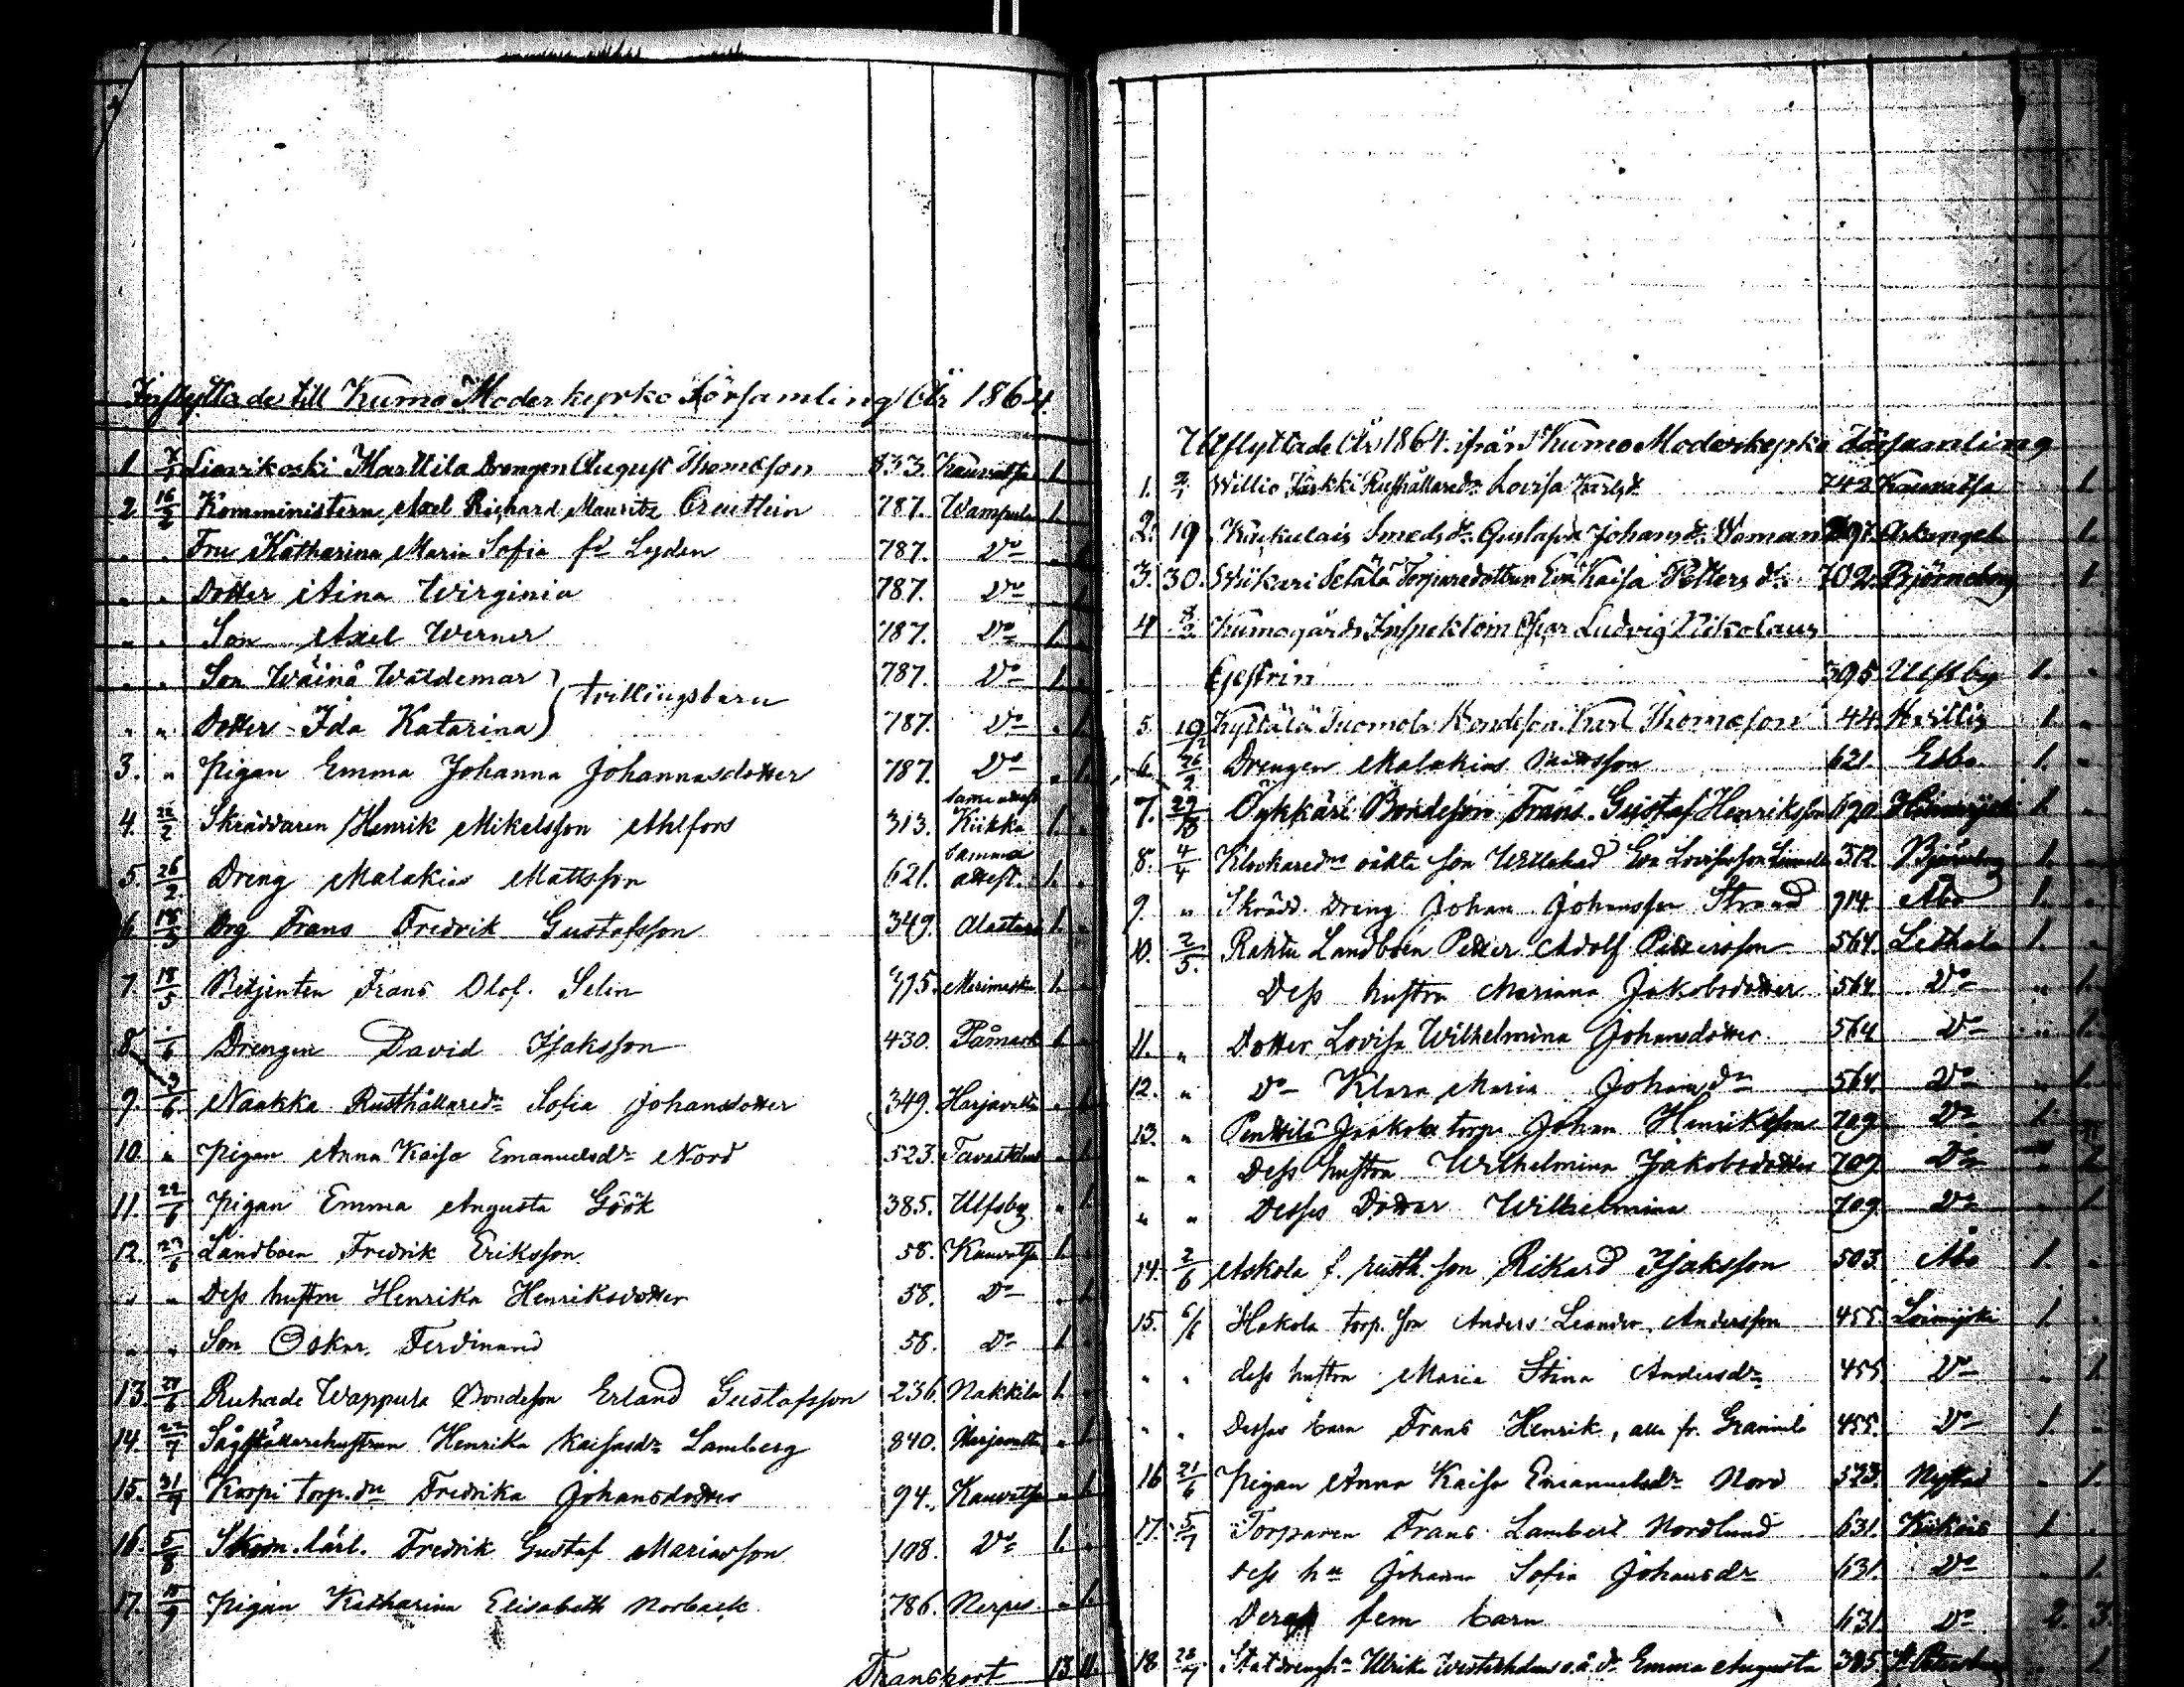 Inflyttade till Kumo Moderkyrko Församling År 1864
1 7/1 Liavikoski Marttila Drengen August Thomasson 833. Kauvatsa 1.
2 16/2 Komministern Axel Richard Mauritz 787. Wampula 1.
" " Fru Katharina Maria Sofia fd Lyden 787. Do 1.
" " Dotter Aina Wirginia 787. Do 1.
" " Son Axel Werner 787. Do 1.
" " Son Wäinä Waldemar } tvillingsbarn 787. Do 1.
" " Dotter Ida Katarina } 787. Do " 1.
3. " Pigan Emma Johanna Johannasdotter 787. Do " 1.
4. 22/2 Skräddaren Henrik Mikelsson Ahlfors 313. Kiikka 1. "
5. 26/2 Dreng Malakias Mattsson 621. samma attest. 1. "
6. 18/3 Drg Frans Fredrik Gustafsson 349. Alastaro 1. "
7. 18/5 Betjenten Frans Olof. Selin Merimasku 1. "
8. /6 Drengen David Isaksson 430. Påmark 1. "
9. 3/6 Naakka Rusthållaredr Sofia Johansdotter 349. Harjavalta " 1.
10. " Pigan Anna Kaisa Emanuelsdr Nord 523. Tavastehus " 1.
11. 22/6 Pigan Emma Augusta Göök 385. Ulfsby " 1.
12. 27/6 Landboen Fredrik Eriksson 58. Kauvatsa 1. "
" " Dess hustru Henrika Henriksdotter 58. Do " 1.
" " Son Oskar Ferdinand 58. Do 1. "
13. 27/6 Ruhade Wappula Bondeson Erland Gustafsson 236. Nakkila 1. "
14. 22/7 Sågställarehustrun Henrika Kaisasdr Lamberg 840. Harjavalta " 1.
15. 31/7 Karpi torp.dn Fredrika Johansdotter 94. Kauvatsa " 1.
16. 5/8 Skom. lärl. Fredrik Gustaf Mariasson 108. Do 1. "
17. 10/9 Pigan Katharina Elisabeth Norback 786. Nerpes " 1.
Transport 13 11.
Utflyttade År 1864. ifrån Kumo Moderkyrko Församling
1. 2/1 Willio Järkki Rusthållaredr Lovisa Karlsd. 742 Kauvatsa 1.
2. 19 Kiukulais Smedsdr Gustafva Johansdr Woman Arkangel 1.
3. 30. Wiikari Setälä Torparedottren Eva Kaisa Petters dr 702. Björneborg 1.
4 2/2 Kumogårds Inspektorn Oscar Ludvig Nikolaus
Gestrin 395 Ulfsby 1. "
5. 19/2 Kyttälä Tuomola Bondeson Karl Thomasson 44. Hvittis 1. "
6. 26/2 Drengen Malakias Mattsson 621 Esbo 1. "
7. Öykkäri Bondeson Frans Gustaf Henriksson 1. "
8. 4/4 Klockaredrs oäkta son Willehad Eva Lovisasson 312. Björneborg 1. "
9. " Skrädd. Dreng Johan Johansson Strand 914. Åbo 1. "
10. 2/5. Rahtu Landboen Petter Adolf Pettersson 564. Lethala 1. "
Dess hustru Mariana Jakobsdotter 564 Do " 1.
11. " Dotter Lovisa Wilhelmina Johansdotter 564 Do " 1.
12. " Do Klara Maria Johansdr 564. Do " 1.
13. " Penttilä Jaakola torp. Johan Henriksson 709. Do 1. "
" " Dess hustru Wilhelmina Jakobsdotter 709. Do " 1.
" " Desses Dotter Wilhelmina 709. Do " 1.
14. 2/6 Askola f. rusth. son Rikard Isaksson 503. Åbo 1. "
15. 6/6 Hakola torp. son Anders Leander Andersson 455. Loimijoki 1. "
" " dess hustru Maria Stina Andersdr 455. Do " 1.
" " Desses barn Frans Henrik, alla fr. 455. Do 1. "
16 21/6 Pigan Anna Kaisa Emanuelsdr Nord 523. Nystad " 1.
17. 5/7 Torparen Frans Lambert Nordlund 631. Kiukais 1 "
dess hu Johanna Sofia Johansdr 631. Do " 1.
Deras fem barn 631. Do 2. 3.
18 28/7 Statdrengh. Ulrika Westerholms o.ä. dr Emma Augusta 385 St Petersburg " 1.